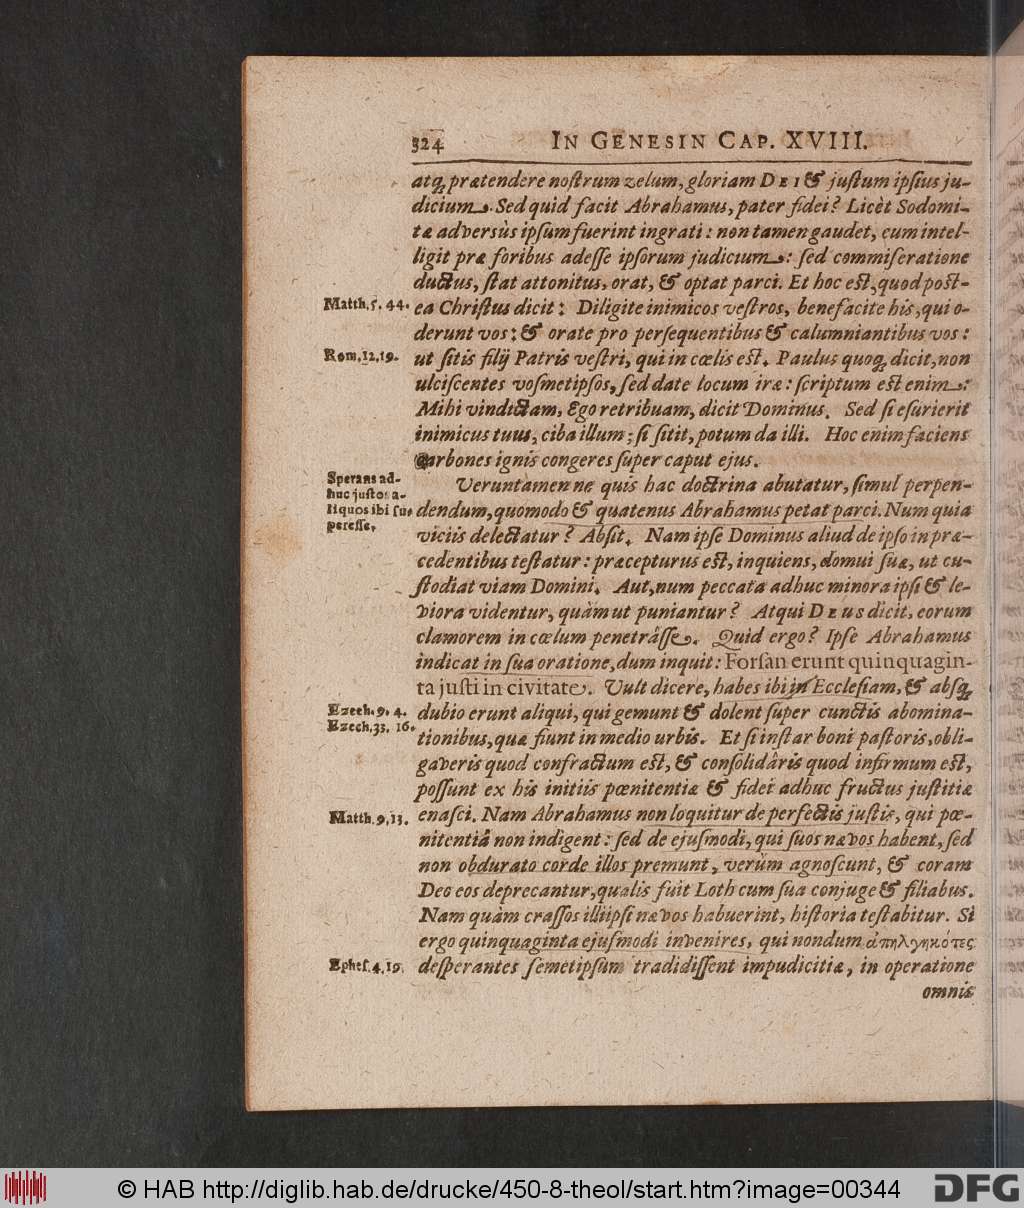 324 IN GENESIN CAP. XVIII.
atq; prætendere nostrum zelum, gloriam DEI & justum ipsius ju-
dicium. Sed quid facit Abrahamus, pater fidei? Licèt Sodomi-
tæ adversùs ipsum fuerint ingrati: non tamen gaudet, cum intel-
ligit præ foribus adesse ipsorum judicium: sed commiseratione
ductus, stat attonitus, orat, & optat parci. Et hoc est, quod post-
Matth. 5. 44. ea Christus dicit: Diligite inimicos vestros, benefacite his, qui o-
derunt vos: & orate pro persequentibus & calumniantibus vos:
Rom. 12, 19. ut sitis filij Patris vestri, qui in cœlis est. Paulus quoq; dicit, non
ulciscentes vosmetipsos, sed date locum iræ: scriptum est enim:
Mihi vindictam, Ego retribuam, dicit Dominus. Sed si esurierit
inimicus tuus, ciba illum; si sitit, potum da illi. Hoc enim faciens
carbones ignis congeres super caput ejus.
Sperans ad-
huc justos a-
liquos ibi su-
peresse.
Veruntamen ne quis hac doctrina abutatur, simul perpen-
dendum, quomodo & quatenus Abrahamus petat parci. Num quia
viciis delectatur? Absit. Nam ipse Dominus aliud de ipso in præ-
cedentibus testatur: præcepturus est, inquiens, domui suæ, ut cu-
stodiat viam Domini. Aut, num peccata adhuc minora ipsi & le-
viora videntur, quàm ut puniantur? Atqui DEUS dicit, eorum
clamorem in cœlum penetrâsse. Quid ergo? Ipse Abrahamus
indicat in sua oratione, dum inquit: Forsan erunt quinquagin-
ta justi in civitate. Vult dicere, habes ibi in Ecclesiam, & absq;
Ezech. 9. 4. dubio erunt aliqui, qui gemunt & dolent super cunctis abomina-
Ezech. 33. 16. tionibus, quæ fiunt in medio urbis. Et si instar boni pastoris, obli-
gaveris quod confractum est, & consolidâris quod infirmum est,
possunt ex his initiis pœnitentiæ & fidei adhuc fructus justitiæ
Matth. 9, 13. enasci. Nam Abrahamus non loquitur de perfectis justis, qui pœ-
nitentiâ non indigent: sed de ejusmodi, qui suos nævos habent, sed
non obdurato corde illos premunt, verùm agnoscunt, & coram
Deo eos deprecantur, qualis fuit Loth cum sua conjuge & filiabus.
Nam quàm crassos illi ipsi nævos habuerint, historia testabitur. Si
ergo quinquaginta ejusmodi invenires, qui nondum ἀπηλγηκότες
Ephes. 4, 19. desperantes semetipsum tradidissent impudicitiæ, in operatione
omnis
© HAB http://diglib.hab.de/drucke/450-8-theol/start.htm?image=00344
DFG